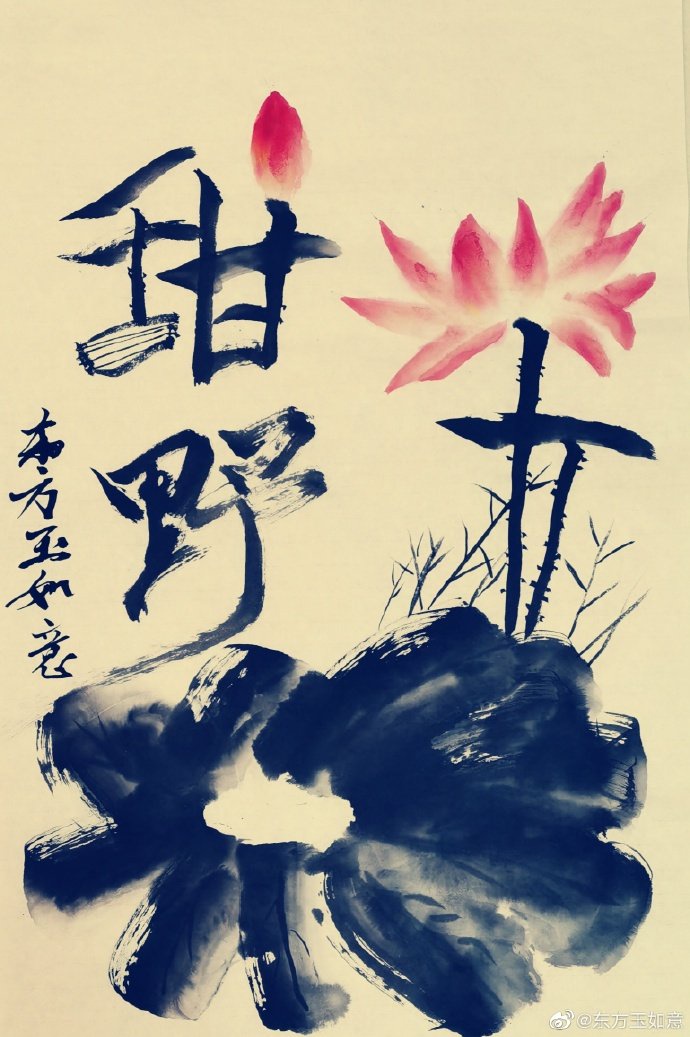 甜野
东方玉如意
@东方玉如意